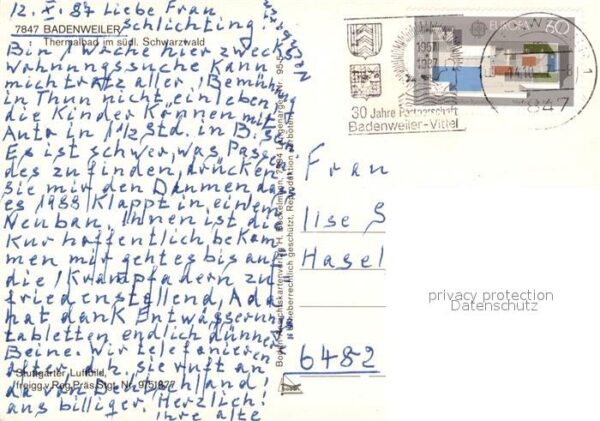 12. X. 87 Liebe Frau
Schlichting!
7847 BADENWEILER
Thermalbad im südl. Schwarzwald
Bin 1 Woche hier zwecks
Wohnungssuche kann
mich tratz aller Bemüh
in Thun nicht einleben
die Kinder können mit
Auto in 1 1/2 Std. in B. sei
Es ist schwer, was Passen
des zu finden, drücken
Sie mir den Daumen da
es 1988 klappt in einem
Neubau. Ihnen ist die
Kur hoffentlich bekom
men mir gehtes bis auf
die Krampfadern zu
friedenstellend, Ada
hat dank Entwässerun
tabletten endlich dünne
Beine. Wir telefonieren
öfter da sie ruft an
da von Deutschland
aus billiger. Herzlich!
ihre alte
Stuttgarter Luftbild,
freigg. v. Reg. Präs. Stgt. Nr. 9/51877
EUROPA 60
1957
1987
30 Jahre Partnerschaft
Badenweiler-Vittel
7847
Frau
Ilse S
Hasel
6482
privacy protection
Datenschutz